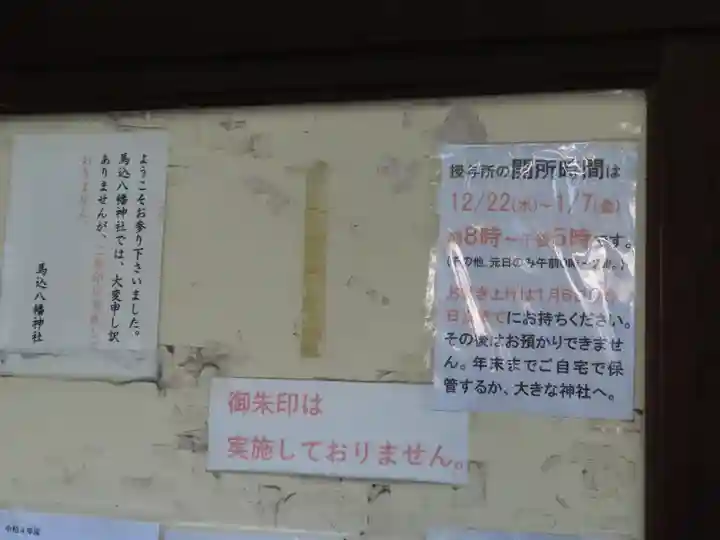 ようこそお参り下さいました。
馬込八幡神社では、大変申し訳
ありませんが、
おりません
馬込八幡神社
御朱印は
実施しておりません。
授与所の開所時間は
12/22(水)～1/7(金)
8時～ 5時です。
元日のみ午前0時～
1月
日 にお持ちください。
その後はお預かりできませ
ん。年末までご自宅で保
管するか、大きな神社へ。
令和4年度